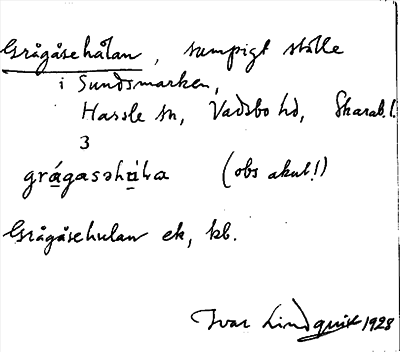 Grågåsehålan, sumpigt ställe
i Sundsmarken,
Hassle sn, Vadsbo hd, Skarab. l.
3
grágasəhòla (obs akut!)
Grågåsehulan ek, kb.
Ivar Lindquist 1928